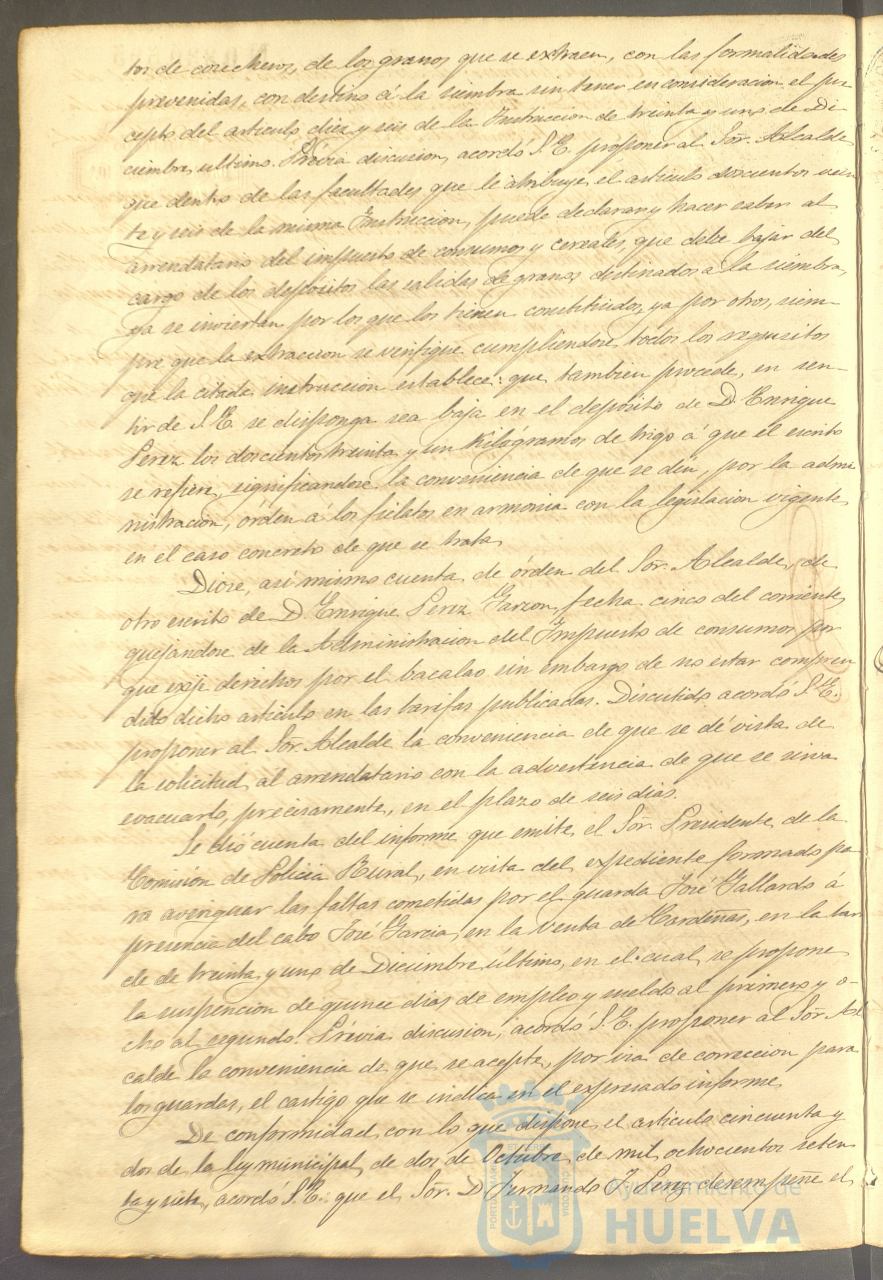 tos de cosecheros, de los granos que se extraen, con las formalidades
prevenidas, con destino á la siembra sin tener en consideracion el pre
cepto del articulo diez y seis de la Instruccion de treinta y uno de Di
ciembre último. Prévia discusion, acordó S.E. proponer al Sor. Alcalde
que dentro de las facultades que le atribuye el artículo doscientos vein
te y seis de la misma Instruccion, puede declarar y hacer saber al
arrendatario del impuesto de consumos y cereales, que debe bajar del
cargo de los depósitos las salidas de granos destinados a la siembra,
ya se inviertan por los que los tienen constituidos, ya por otros, siem-
pre que la extraccion se verifique cumpliendose todos los requisitos
que la citada instruccion establece: que tambien procede, en sen-
tir de S.E. se disponga sea baja en el depósito de D. Enrique
Perez los doscientos treinta y un kilógramos de trigo á que el escrito
se refiere, significandose la conveniencia de que se den, por la admi
nistracion, órden á los fielatos en armonia con la legislacion vigente
en el caso concreto de que se trata.
Diose, asi mismo cuenta, de órden del Sor. Alcalde, de
otro escrito de D. Enrique Perez Garzon, fecha cinco del corriente,
quejandose de la Administracion del Impuesto de consumos por
que exije derechos por el bacalao sin embargo de no estar compren
dido dicho artículo en las tarifas publicadas. Discutido acordó S.E.
proponer al Sor. Alcalde la conveniencia de que se dé vista de
la solicitud al arrendatario con la advertencia de que se sirva
evacuarlo, précisamente, en el plazo de seis dias.
Se dió cuenta del informe que emite el Sor. Presidente de la
Comisión de Policia Rural, en vista del expediente formado pa
ra averiguar las faltas cometidas por el guarda José Gallardo á
presencia del cabo José Garcia, en la venta de Cardeñas, en la tar
de de treinta y uno de Diciembre último, en el cual se propone
la suspencion de quince dias de empleo y sueldo al primero y o-
cho al segundo. Prévia discusion, acordó S.E. proponer al Sor. Al
calde la conveniencia de que se acepte, por via de correccion para
los guardas, el castigo que se indica en el expresado informe.
De conformidad con lo que dispone el artículo cincuenta y
dos de la ley municipal, de dos de Octubre de mil ochocientos seten
ta y siete, acordó S.E. que el Sor. D. Fernando J. Perez desempeñe el
Ayuntamiento de
HUELVA